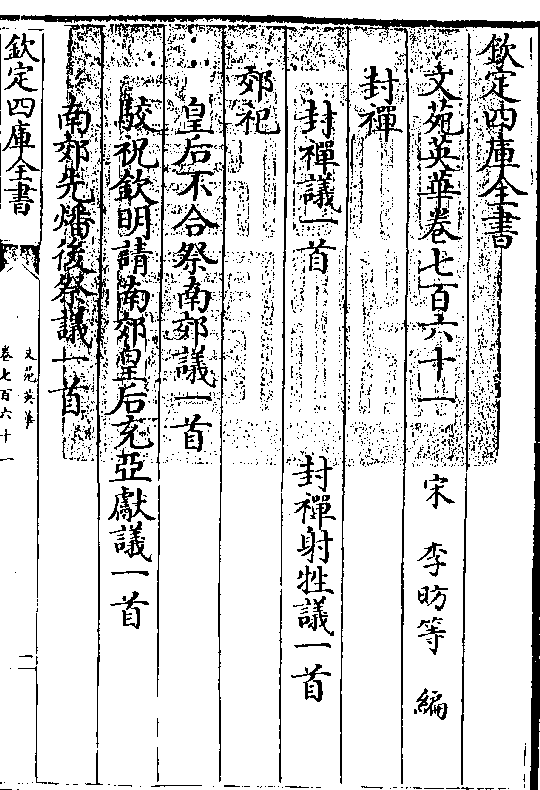 欽定四庫全書
文苑英華卷七百六十一　宋　李昉等　編
封禪
封禪議一首　封禪射牲議一首
郊祀
皇后不合祭南郊議一首
駮祝欽明請南郊皇后充亞獻議一首
南郊先燔後祭議一首
欽定四庫全書
文苑英華
卷七百六十一
一